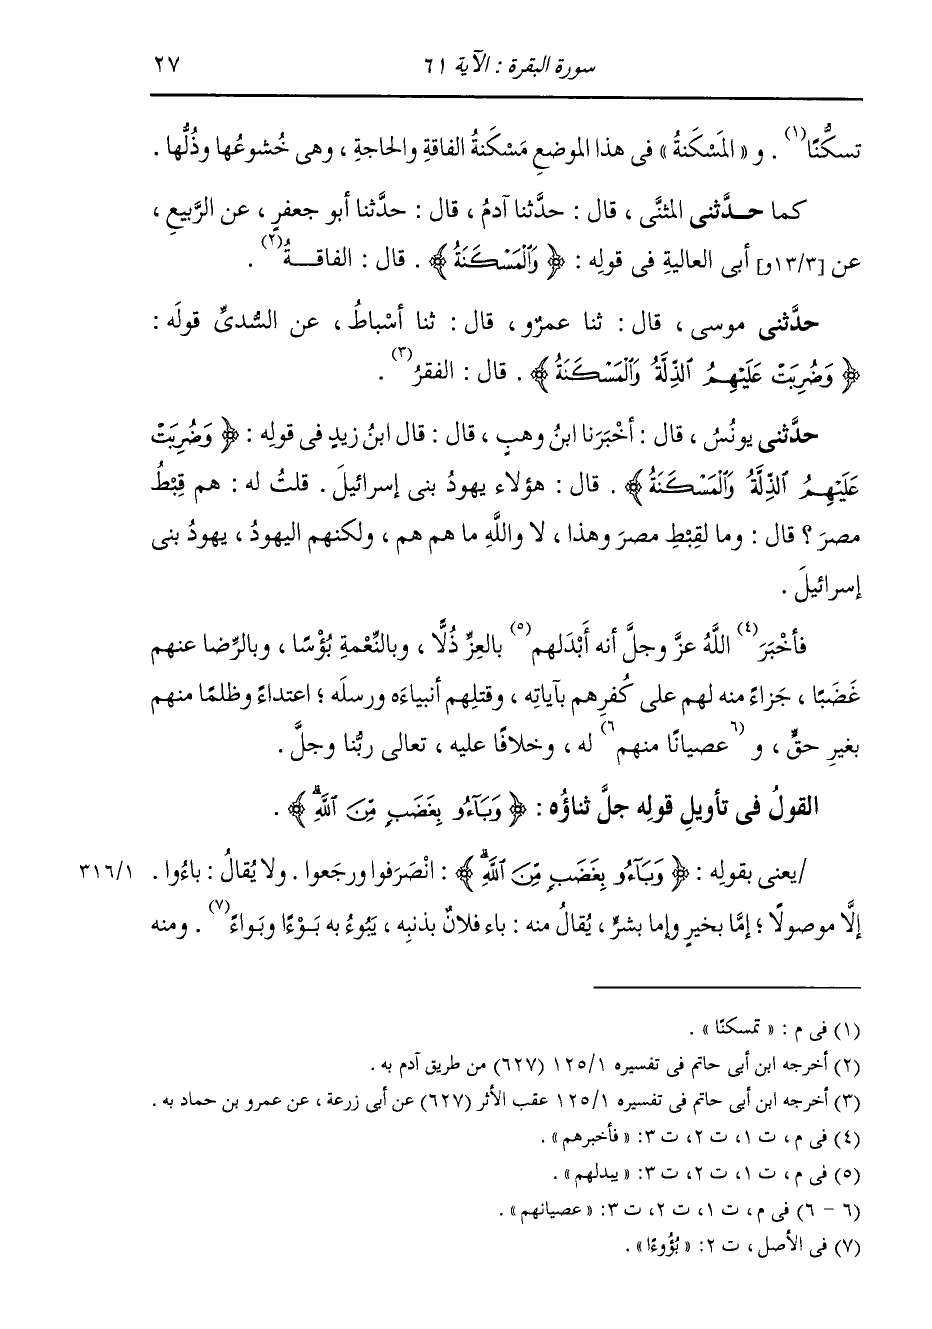 سورة البقرة : الآية ٦١ ٢٧
تسكُّنًا(١) . و « المَسْكَنةُ » فى هذا الموضعِ مَسْكنةُ الفاقةِ والحاجةِ ، وهى خُشوعُها وذُلُّها .
كما حـدَّثنى المثنَّى ، قال : حدَّثنا آدمُ ، قال : حدَّثنا أبو جعفرٍ ، عن الرَّبيعِ ،
عن [١٣/٣و] أبى العاليةِ فى قولِه : ﴿ وَالْمَسْكَنَةُ ﴾ . قال : الفاقـــةُ(٢) .
حدَّثنى موسى ، قال : ثنا عمرٌو ، قال : ثنا أسْباطُ ، عن السُّدىِّ قولَه :
﴿ وَضُرِبَتْ عَلَيْهِمُ الذِّلَّةُ وَالْمَسْكَنَةُ ﴾ . قال : الفقرُ(٣) .
حدَّثنى يونُسُ ، قال : أخْبَرَنا ابنُ وهبٍ ، قال : قال ابنُ زيدٍ فى قولِه : ﴿ وَضُرِبَتْ
عَلَيْهِمُ الذِّلَّةُ وَالْمَسْكَنَةُ ﴾ . قال : هؤلاء يهودُ بنى إسرائيلَ . قلتُ له : هم قِبْطُ
مصرَ ؟ قال : وما لقِبْطِ مصرَ وهذا ، لا واللَّهِ ما هم هم ، ولكنهم اليهودُ ، يهودُ بنى
إسرائيلَ .
فأخْبَرَ(٤) اللَّهُ عزَّ وجلَّ أنه أَبْدَلهم(٥) بالعِزِّ ذُلًّا ، وبالنِّعْمةِ بُؤْسًا ، وبالرِّضا عنهم
غَضَبًا ، جَزاءً منه لهم على كُفرِهم بآياتِه ، وقتلِهم أنبياءَه ورسلَه ؛ اعتداءً وظلمًا منهم
بغيرِ حقٍّ ، و (٦عصيانًا منهم٦) له ، وخلافًا عليه ، تعالى ربُّنا وجلَّ .
القولُ فى تأويلِ قولِه جلَّ ثناؤُه : ﴿ وَبَآءُو بِغَضَبٍ مِّنَ اللَّهِ ﴾ .
/يعنى بقولِه : ﴿ وَبَآءُو بِغَضَبٍ مِّنَ اللَّهِ ﴾ : انْصَرَفوا ورجَعوا . ولا يُقالُ : باءُوا . ٣١٦/١
إلَّا موصولًا ؛ إمَّا بخيرٍ وإما بشرٍّ ، يُقالُ منه : باء فلانٌ بذنبِه ، يَبُوءُ به بَـوْءًا وبَواءً(٧) . ومنه
(١) فى م : « تمسكنًا » .
(٢) أخرجه ابن أبى حاتم فى تفسيره ١٢٥/١ (٦٢٧) من طريق آدم به .
(٣) أخرجه ابن أبى حاتم فى تفسيره ١٢٥/١ عقب الأثر (٦٢٧) عن أبى زرعة ، عن عمرو بن حماد به .
(٤) فى م، ت ١، ت ٢، ت ٣: « فأخبرهم» .
(٥) فى م، ت ١، ت ٢، ت ٣: « يبدلهم» .
(٦ - ٦) فى م، ت ١، ت ٢، ت ٣: « عصيانهم» .
(٧) فى الأصل، ت ٢: « بُؤُوءًا» .